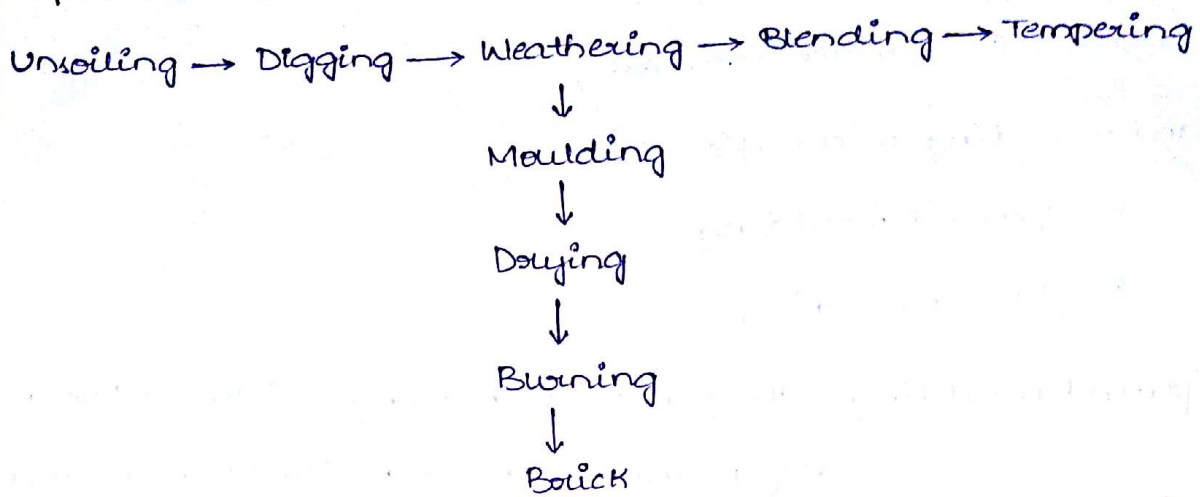 Unsoiling → Digging → Weathering → Blending → Tempering
↓
Moulding
↓
Drying
↓
Burning
↓
Brick